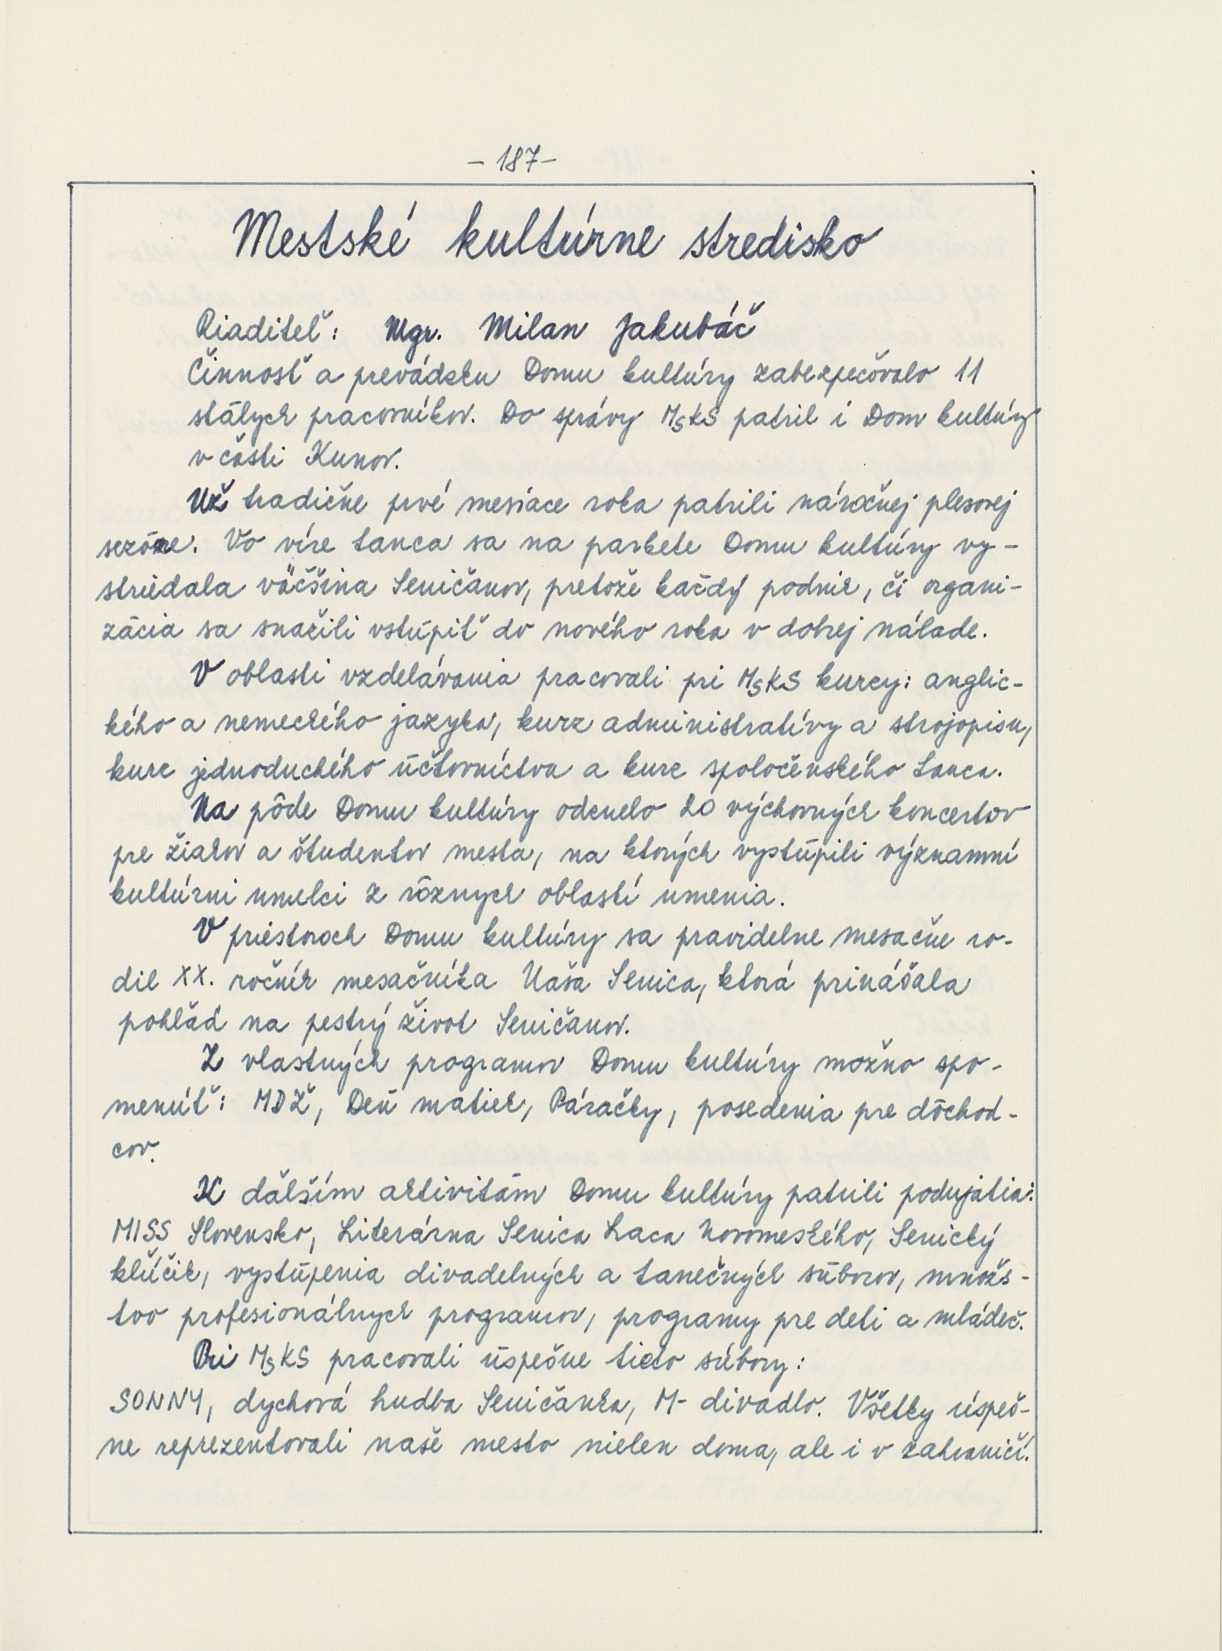 - 187 -
Mestské kultúrne stredisko
Riaditeľ: Mgr. Milan Jakubáč
Činnosť a prevádzku Domu kultúry zabezpečovalo 11
stálych pracovníkov. Do správy MsKS patril i Dom kultúry
v časti Kunov.
Už tradične prvé mesiace roka patrili náročnej plesovej
sezóne. Vo víre tanca sa na parkete Domu kultúry vy-
striedala väčšina Seničanov, pretože každý podnik, či organi-
zácia sa snažili vstúpiť do nového roka v dobrej nálade.
V oblasti vzdelávania pracovali pri MsKS kurzy: anglic-
kého a nemeckého jazyka, kurz administratívy a strojopisu,
kurz jednoduchého účtovníctva a kurz spoločenského tanca.
Na pôde Domu kultúry odznelo 20 výchovných koncertov
pre žiakov a študentov mesta, na ktorých vystúpili významní
kultúrni umelci z rôznych oblastí umenia.
V priestoroch Domu kultúry sa pravidelne mesačne ro-
dil XX. ročník mesačníka Naša Senica, ktorá prinášala
pohľad na pestrý život Seničanov.
Z vlastných programov Domu kultúry možno spo-
menúť: MDŽ, Deň matiek, Páračky, posedenia pre dôchod-
cov.
K ďalším aktivitám Domu kultúry patrili podujatia:
MISS Slovensko, Literárna Senica Laca Novomeského, Senický
kľúčik, vystúpenia divadelných a tanečných súborov, množs-
tvo profesionálnych programov, programy pre deti a mládež.
Pri MsKS pracovali úspešne tieto súbory:
SONNY, dychová hudba Seničanka, M- divadlo. Všetky úspeš-
ne reprezentovali naše mesto nielen doma, ale i v zahraničí.